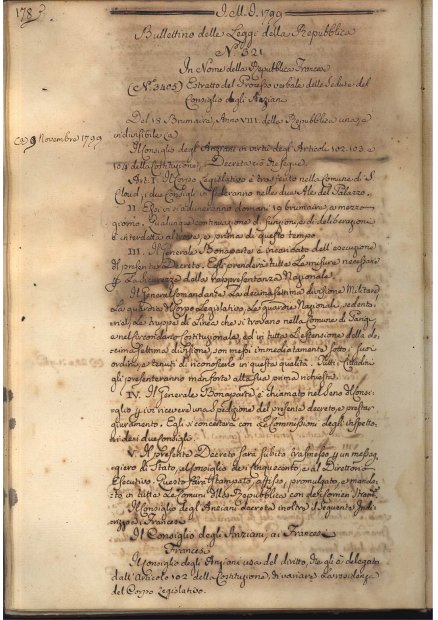 178
I.M.I. 1799
Bullettino delle Leggi della Repubblica
N.° 321
In Nome della Repubblica Francese
(N.° 3405) Estratto del Processo verbale delle Sedute del
Consiglio degli Anziani
Del 18 Brumaire, Anno VIII. della Repubblica una, e
indivisibile
Ca 9 Novembre 1799
Il Consiglio degli Anziani in virtù degli Articoli 102. 103. e
104 della Costituzione, Decreta ciò che segue.
Art. I. Il Corpo Legislativo è trasferito nella Comune di S.
Cloud, i due Consigli vi sederanno nelle due Ale del Palazzo.
II. Essi vi si aduneranno domani 19 brumaire, a mezzo
giorno. Qualunque continuazione di funzioni, e di deliberazioni
è interdetta altrove, e prima di questo tempo
III. Il Generale Bonaparte è incaricato dell'esecuzione
del presente Decreto. Egli prenderà tutte le misure necessarie
per la sicurezza della rappresentanza Nazionale.
Il Generale Comandante la decimasettima divisione Militare
la guardia del Corpo Legislativo, le guardie Nazionali sedenta-
rie, le truppe di linea che si trovano nella Comune di Parigi
e nel circondario Costituzionale, ed in tutta l'estensione della de-
cimasettima divisione, son messi immediatamente sotto i suoi
ordini, e tenuti di riconoscerlo in questa qualità. Tutti i Cittadini
gli presteranno man forte alla sua prima richiesta.
IV. Il Generale Bonaparte è chiamato nel seno del Consi-
glio per ricevervi una spedizione del presente decreto, e prestar
giuramento. Egli si concerterà con le Commissioni degli Ispetto-
ri dei due Consigli.
V. Il presente Decreto sarà subito trasmesso per un messag-
giero di Stato, al Consiglio dei Cinquecento, e al Direttorio
Esecutivo. Questo sarà stampato, affisso, promulgato, e manda-
to in tutte le Comuni della Repubblica con
Il Consiglio degli Anziani decreta inoltre il seguente Indi-
rizzo ai Francesi
Il Consiglio degli Anziani, ai Francesi
Francesi
Il Consiglio degli Anziani usa del diritto, che gli è delegato
dall'Articolo 102 della Costituzione, di variare la residenza
del Corpo Legislativo.